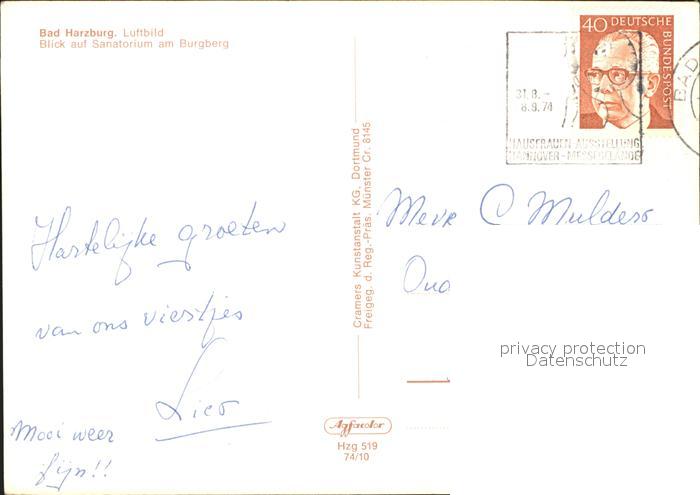 Bad Harzburg. Luftbild
Blick auf Sanatorium am Burgberg
40 DEUTSCHE BUNDESPOST
31.8. –
8.9.74
HAUSFRAUEN-AUSSTELLUNG
HANNOVER-MESSEGELÄNDE
BAD
Cramers Kunstanstalt KG, Dortmund
Freigeg. d. Reg.-Präs. Münster Cr. 8145
Hartelijke groeten
van ons viertjes
Lico
Mooi weer
fijn!!
Mevr C Mulders
Oud
privacy protection
Datenschutz
Agfacolor
Hzg 519
74/10